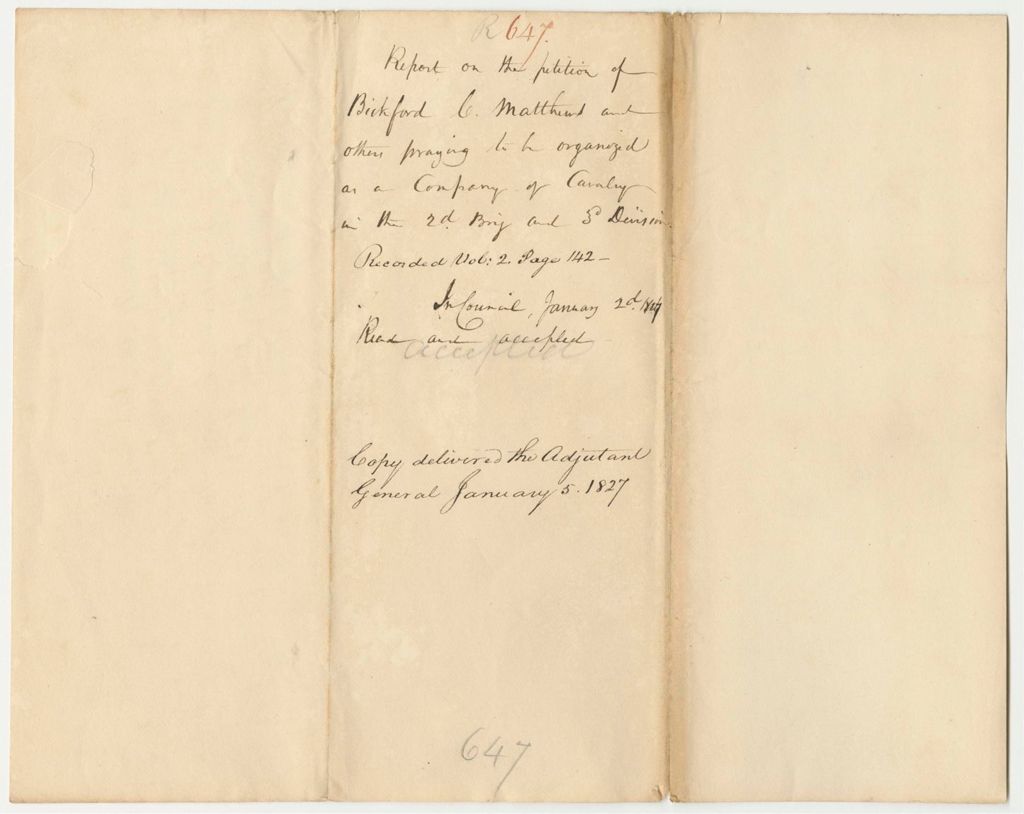 R 647.
Report on the petition of
Bickford C. Matthews and
others praying to be organized
as a Company of Cavalry
in the 2d. Brig and 3d Division.
Recorded Vol: 2. Page 142 –
In Council, January 2d. 1827
Read and accepted
accepted
Copy delivered the Adjutant
General January 5. 1827
647